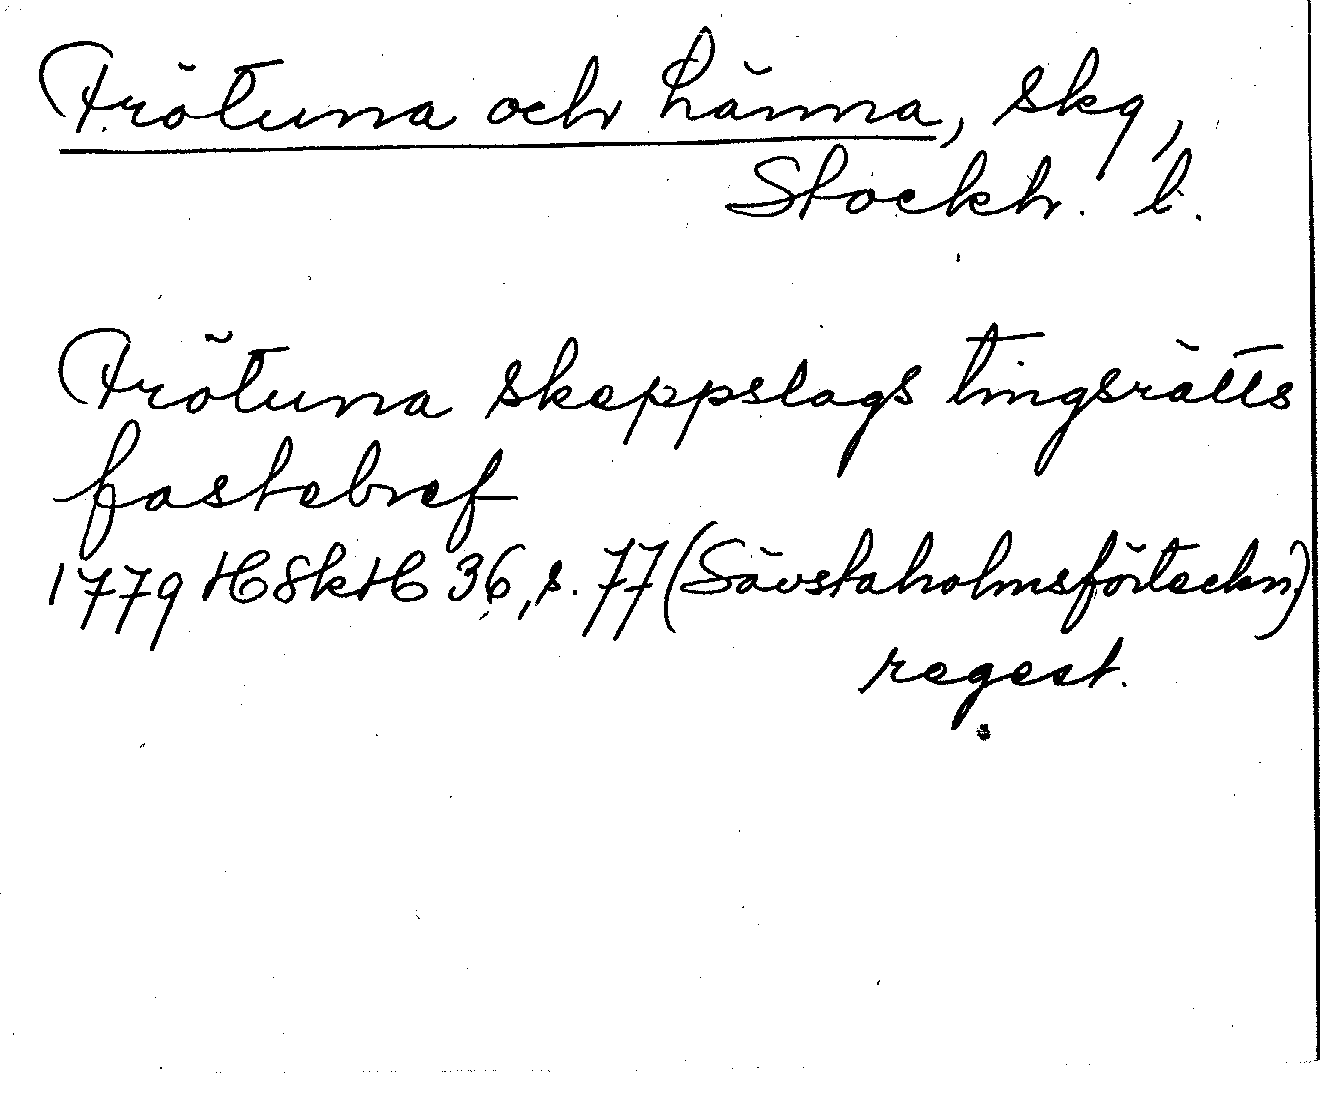 Frötuna och Länna, skg,
Stockh. l.
Frötuna skeppslags tingsrätts
fastebref
1779 HSkH 36, s. 77 (Sävstaholmsförteckn)
regest.